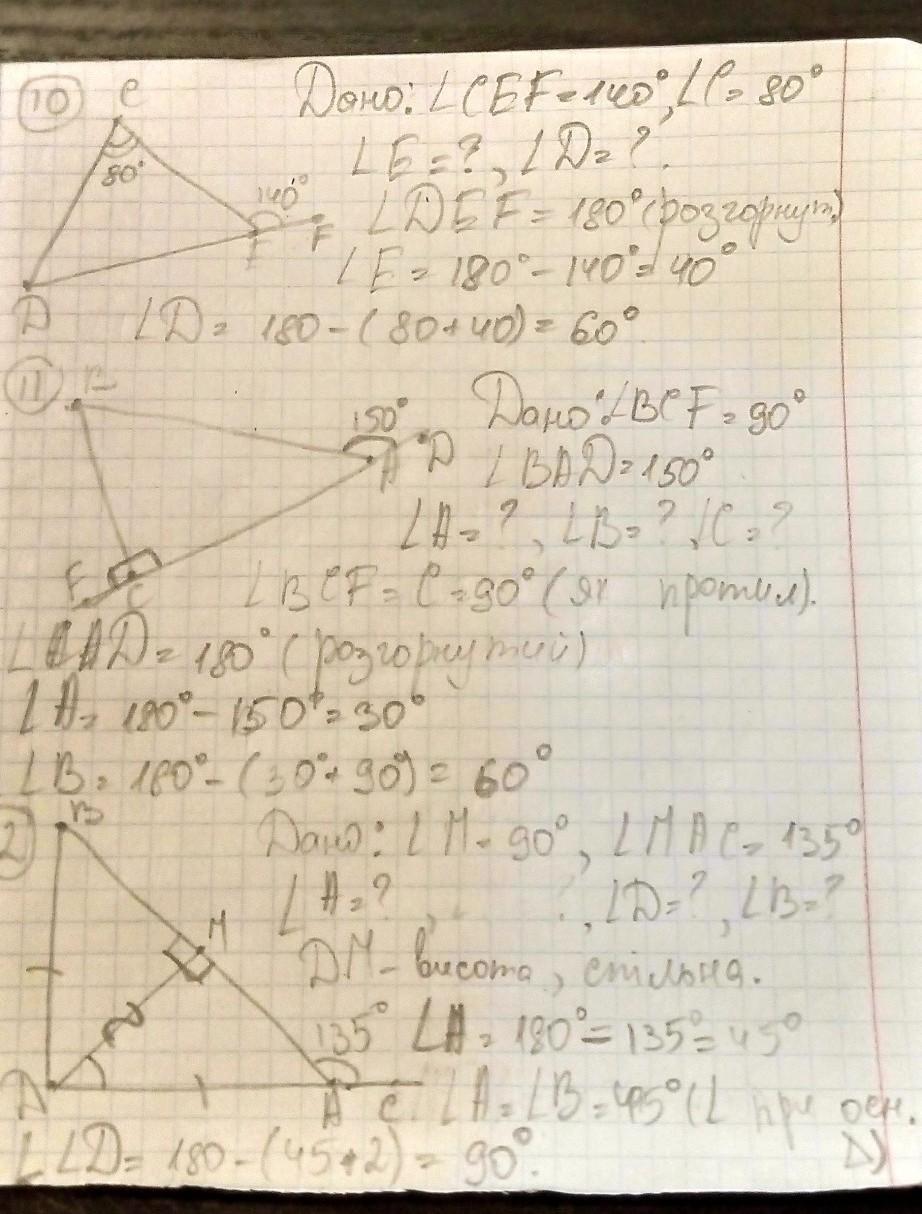 10 C Дано: ∠CEF=140°, ∠C=80°
80° ∠E=?, ∠D=?.
140° E F ∠DEF=180°(розгорнут)
∠E=180°-140°=40°
D ∠D=180-(80+40)=60°
11 B 150° A D Дано:∠BCF=90°
∠BAD=150°
∠A=?, ∠B=? ∠C=?
F C ∠BCF=C=90°(як протил).
∠CAD=180°(розгорнутий)
∠A=180°-150°=30°
∠B=180°-(30°+90°)=60°
2 B Дано: ∠M=90°, ∠MAC=135°
∠A=?, ?, ∠D=?, ∠B=?
M DM-висота, спільна.
135° ∠A=180°=135°=45°
D A C ∠A=∠B=45°(∠ при осн.
∠∠D=180-(45+2)=90°. Δ)